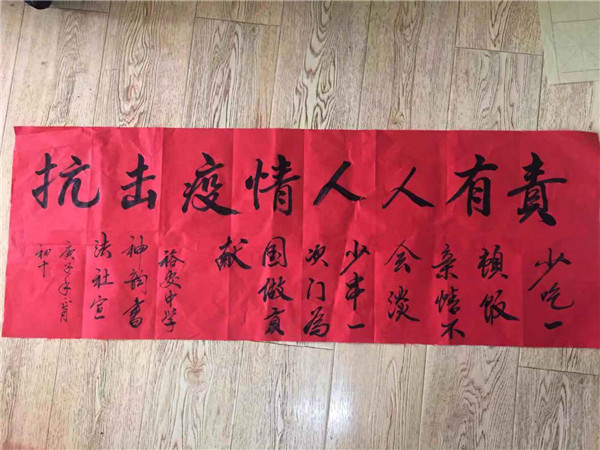 抗击疫情人人有責
少吃一
顿饭
亲情不
会淡
少串一
次门为
国做贡
献
裕安中学
袖韵书
法社宣
庚子年正月
初十